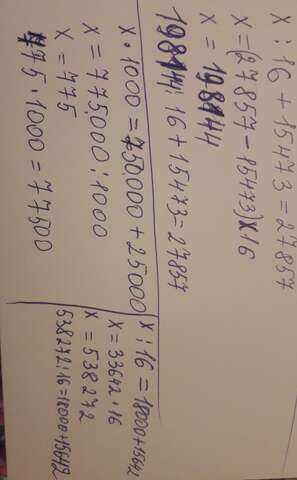 X : 16 + 15473 = 27857
X = (27857 - 15473) X 16
X = 198144
198144 : 16 + 15473 = 27857
X · 1000 = 750,000 + 25000
X = 775,000 : 1000
X = 775
775 · 1000 = 77500
X : 16 = 18000 + 15642
X = 33642 · 16
X = 538272
538272 : 16 = 18000 + 15642